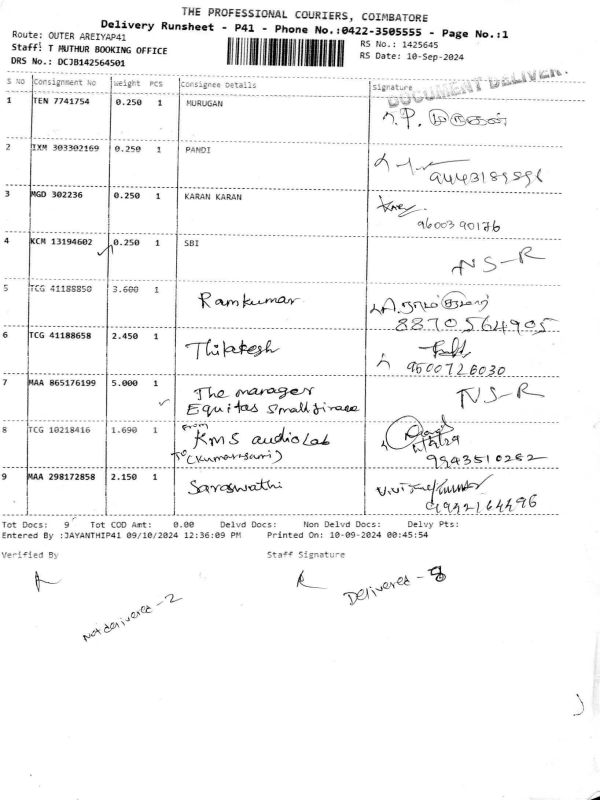 THE PROFESSIONAL COURIERS, COIMBATORE
Delivery Runsheet - P41 - Phone No.:0422-3505555 - Page No.:1
Route: OUTER AREIYAP41 RS No.: 1425645
Staff: T MUTHUR BOOKING OFFICE RS Date: 10-Sep-2024
DRS No.: DCJB142564501
DOCUMENT DELIVER
S NO Consignment No Weight PCS Consignee Details Signature
1 TEN 7741754 0.250 1 MURUGAN P. முருகன்
2 IXM 303302169 0.250 1 PANDI
9443189596
3 MGD 302236 0.250 1 KARAN KARAN
9600390176
4 KCM 13194602 0.250 1 SBI NS-R
5 TCG 41188850 3.600 1 Ramkumar A.ராம்குமார்
8870564905
6 TCG 41188658 2.450 1 Thilakesh
9500726030
7 MAA 865176199 5.000 1 The manager NS-R
Equitas small finace
8 TCG 10218416 1.690 1 From KMS audio Lab
To (Kumaresuri) 9943510282
9 MAA 298172858 2.150 1 Saraswathi
9942164496
Tot Docs: 9 Tot COD Amt: 0.00 Delvd Docs: Non Delvd Docs: Delvy Pts:
Entered By :JAYANTHIP41 09/10/2024 12:36:09 PM Printed On: 10-09-2024 00:45:54
Verified By Staff Signature
Not delivered - 2 Delivered -